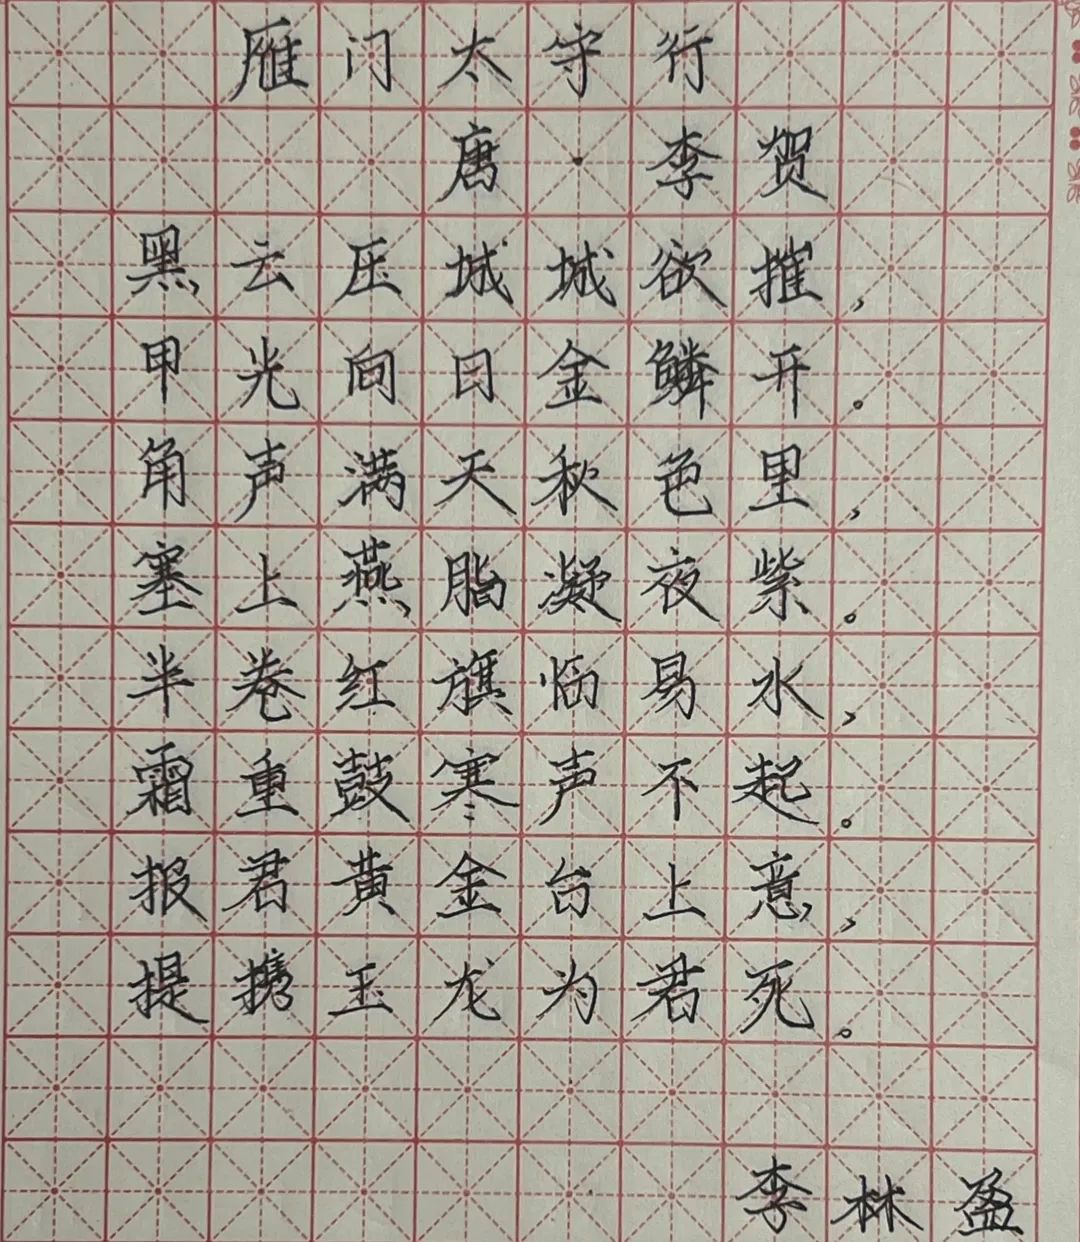 雁门太守行
唐·李贺
黑云压城城欲摧,
甲光向日金鳞开。
角声满天秋色里,
塞上燕脂凝夜紫。
半卷红旗临易水,
霜重鼓寒声不起。
报君黄金台上意,
提携玉龙为君死。
李林盈